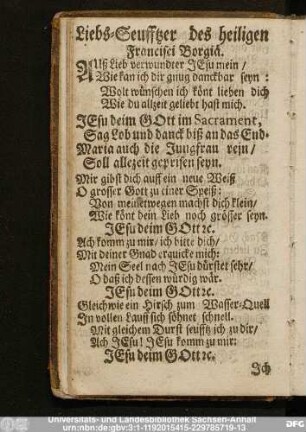 Liebs-Seufftzer des heiligen
Francisci Borgiä.
Auß Lieb verwundter JEsu mein /
Wie kan ich dir gnug danckbar seyn :
Wolt wünschen ich könt lieben dich
Wie du allzeit geliebt hast mich.
JEsu deim GOtt im Sacrament,
Sag Lob und danck biß an das End-
Maria auch die Jungfrau rein /
Soll allezeit geprisen seyn.
Mir gibst dich auff ein neue Weiß
O grosser Gott zu einer Speiß:
Von meinetwegen machst dich klein /
Wie könt dein Lieb noch grösser seyn.
JEsu deim GOtt ꝛc.
Ach komm zu mir / ich bitte dich /
Mit deiner Gnad erquicke mich:
Mein Seel nach JEsu dürstet sehr /
O daß ich dessen würdig wär.
JEsu deim GOtt ꝛc.
Gleich wie ein Hirsch zum Wasser-Quell
In vollen Lauff sich söhnet schnell.
Mit gleichem Durst seuffz ich zu dir /
Ach JEsu ! JEsu komm zu mir:
JEsu deim GOtt ꝛc.
Ich
Universitäts- und Landesbibliothek Sachsen-Anhalt
urn:nbn:de:gbv:3:1-1192015415-229785719-13
DFG